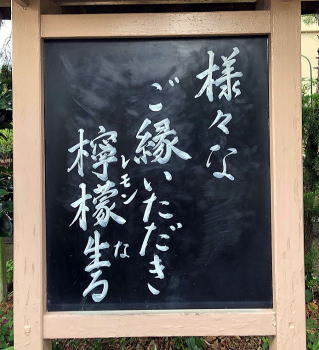 様々な
ご縁いただき
檸檬生る
レモン
な